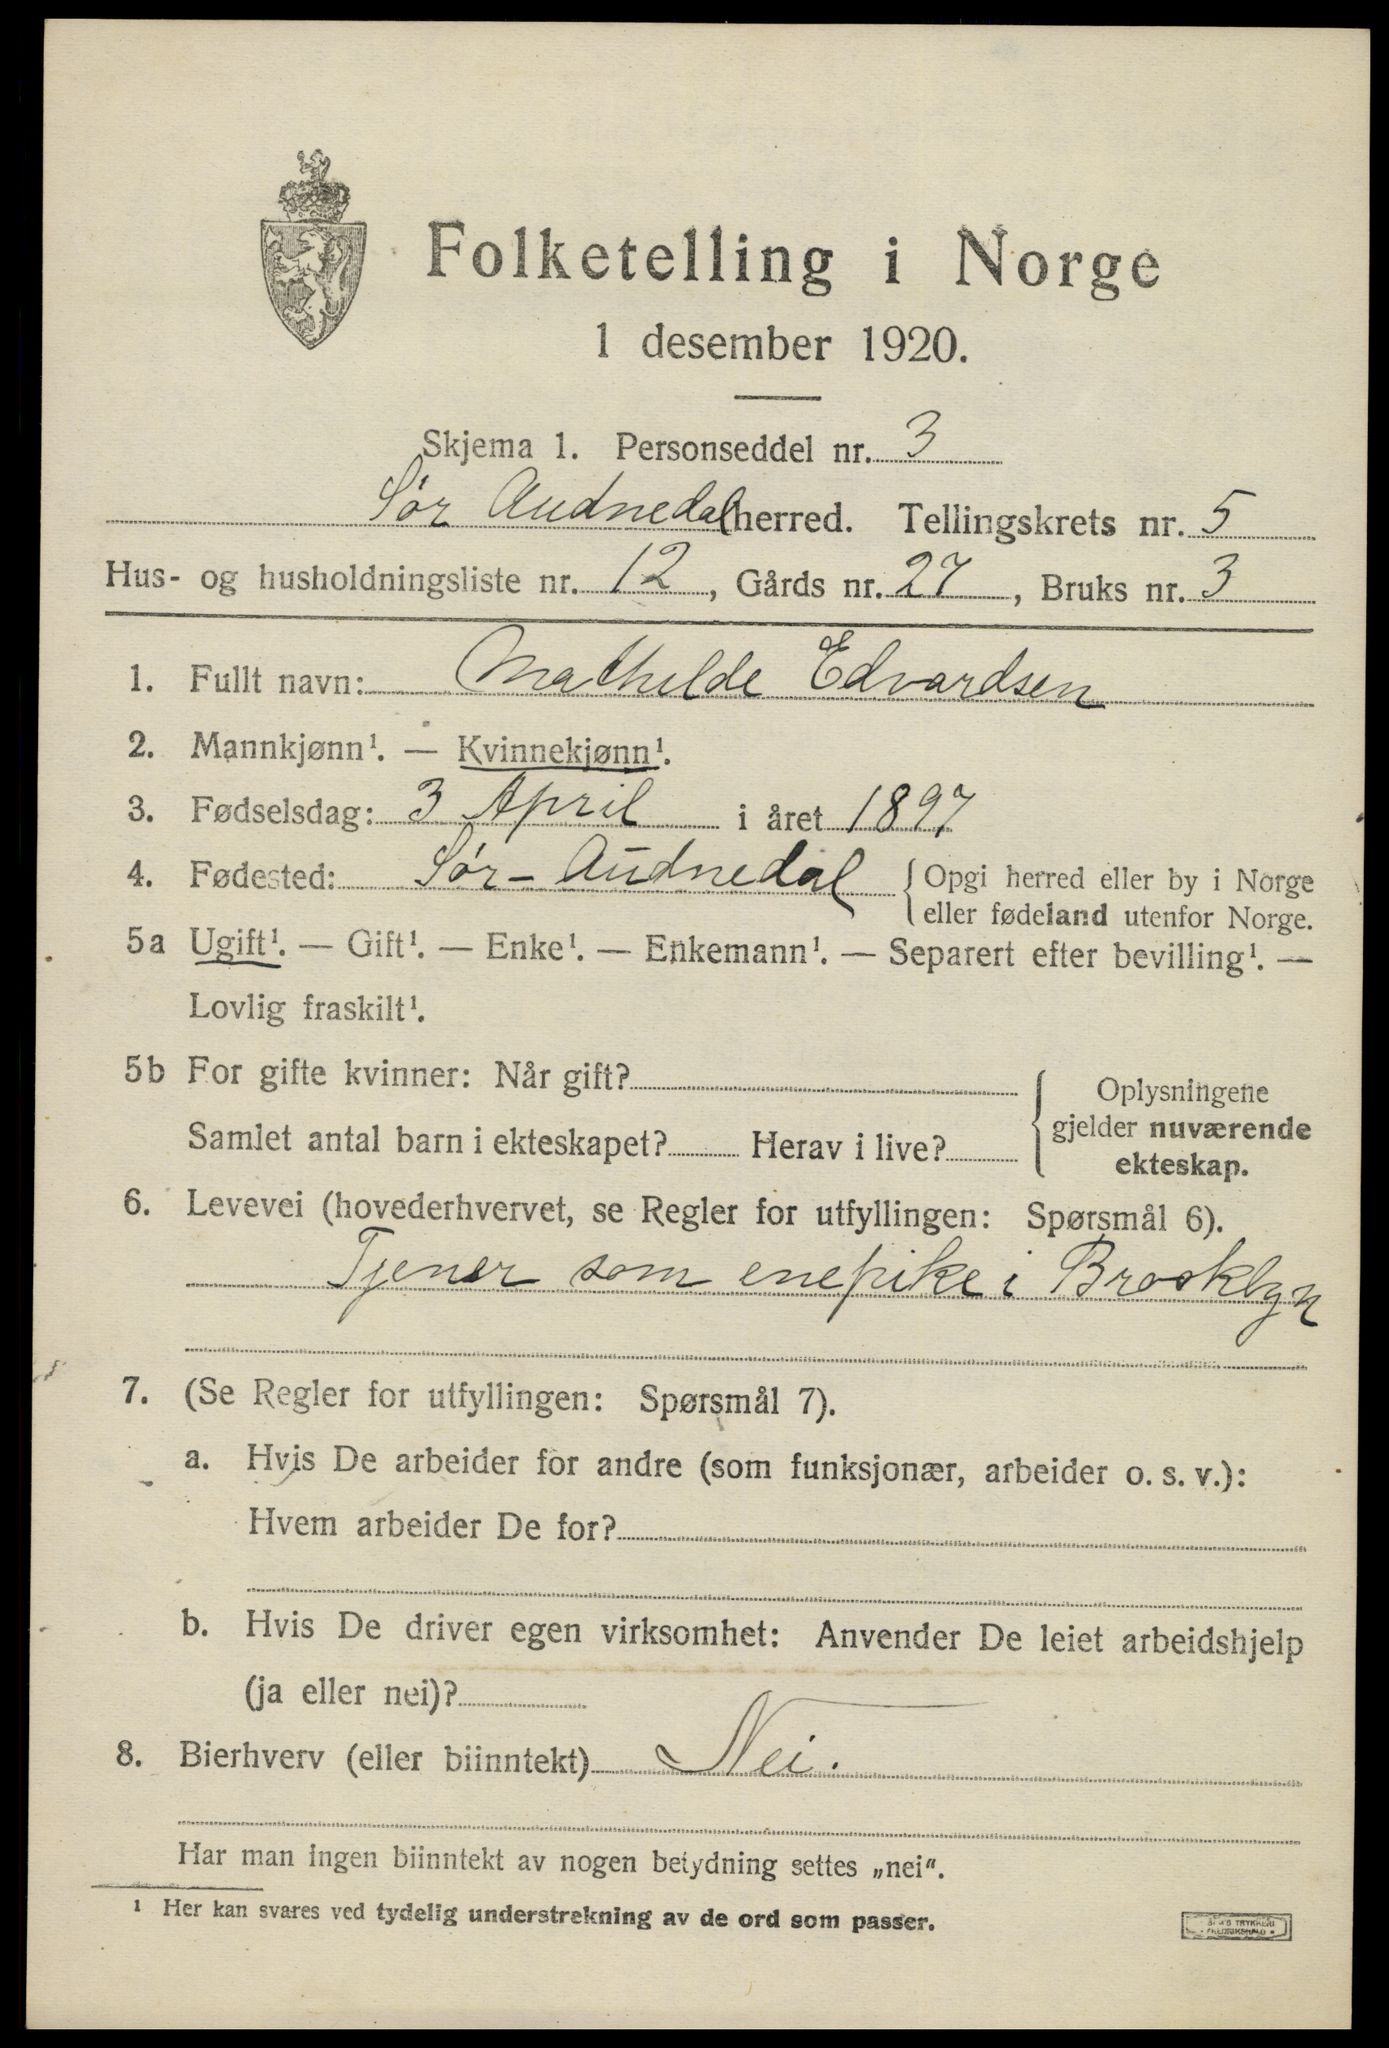 Folketelling i Norge
1 desember 1920.
Skjema 1. Personseddel nr. 3
Sør Audnedal herred. Tellingskrets nr. 5
Hus- og husholdningsliste nr. 12, Gårds nr. 27, Bruks nr. 3
1. Fullt navn: Mathilde Edvardsen
2. Mannkjønn¹. — Kvinnekjønn¹.
3. Fødselsdag: 3 April i året 1897
4. Fødested: Sør-Audnedal { Opgi herred eller by i Norge
eller fødeland utenfor Norge.
5a Ugift¹. — Gift¹. — Enke¹. — Enkemann¹. — Separert efter bevilling¹. —
Lovlig fraskilt¹.
5b For gifte kvinner: Når gift?
Samlet antal barn i ekteskapet? Herav i live?
{ Oplysningene
gjelder nuværende
ekteskap.
6. Levevei (hovederhvervet, se Regler for utfyllingen: Spørsmål 6).
Tjener som enepike i Brooklyn
7. (Se Regler for utfyllingen: Spørsmål 7).
a. Hvis De arbeider for andre (som funksjonær, arbeider o. s. v.):
Hvem arbeider De for?
b. Hvis De driver egen virksomhet: Anvender De leiet arbeidshjelp
(ja eller nei)?
8. Bierhverv (eller biinntekt) Nei.
Har man ingen biinntekt av nogen betydning settes „nei".
¹ Her kan svares ved tydelig understrekning av de ord som passer.
TRYKKERI
FREDRIKSHALD